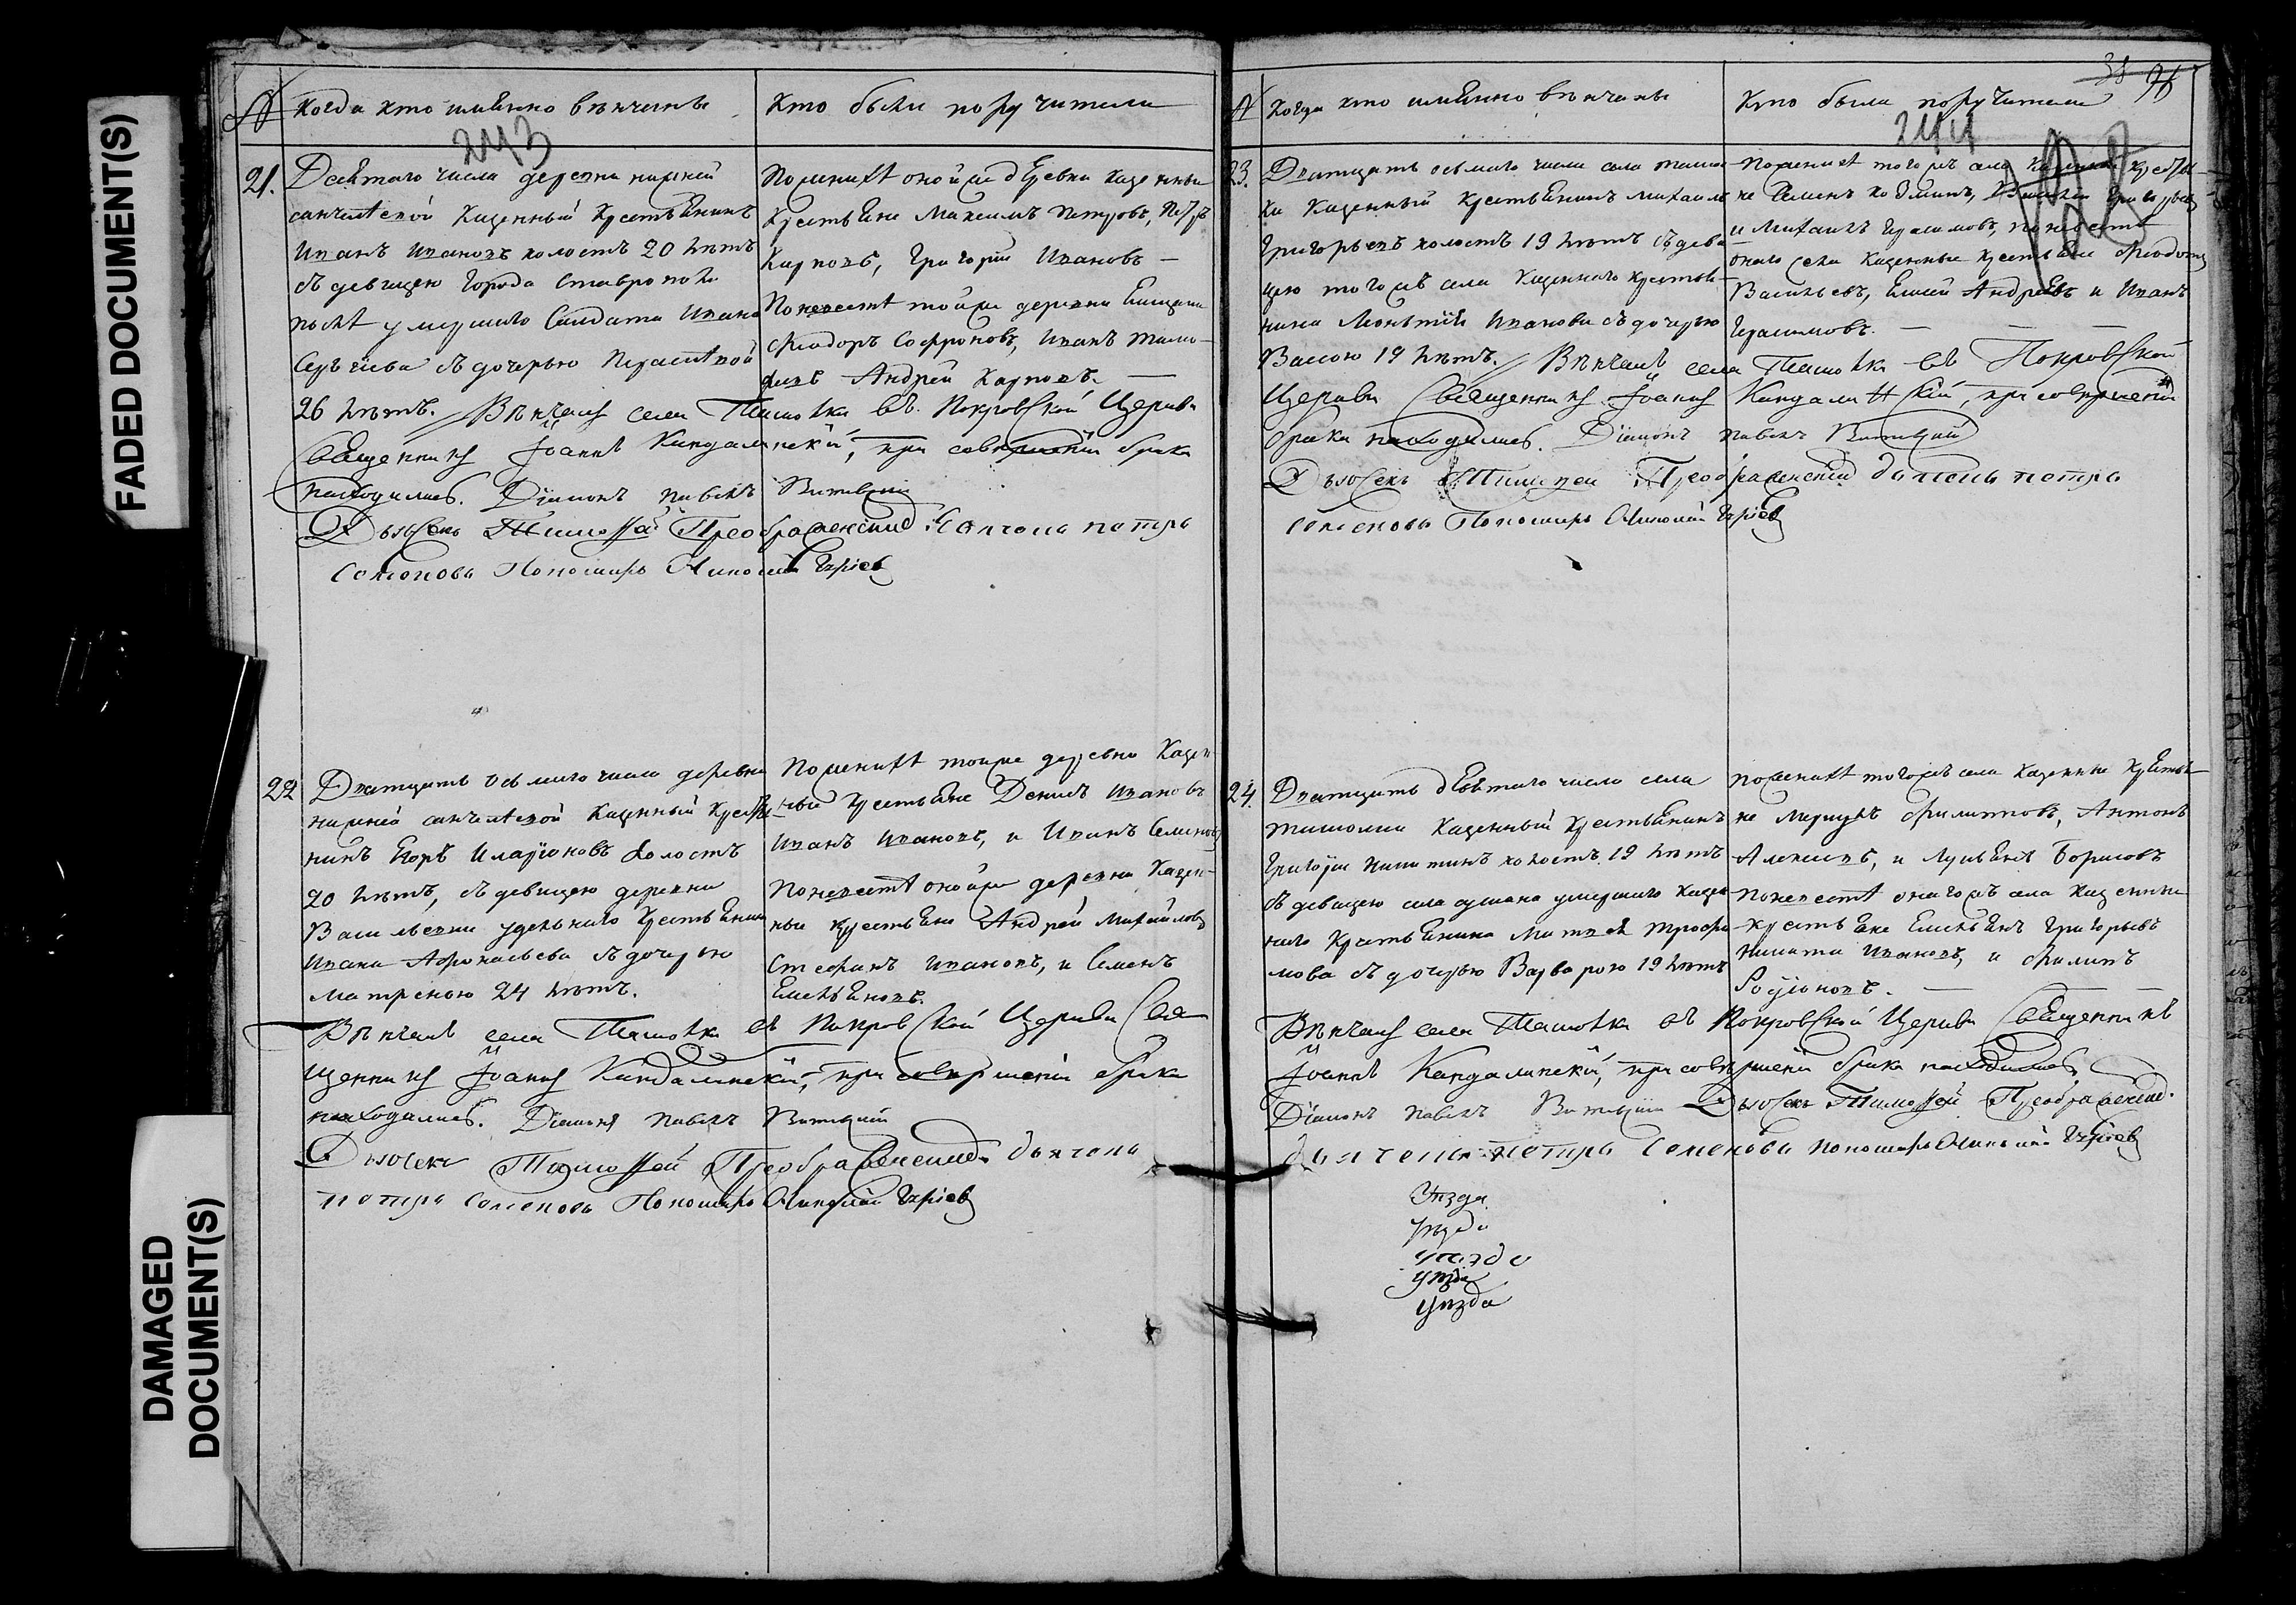 FADED DOCUMENT(S)
DAMAGED
DOCUMENT(S)
№ Когда кто имянно вѣнчаны
Кто были поручители
243
21. Девятаго числа деревни нижней
санчелѣевой Казенный Крестьянинъ
Иванъ Ивановъ холостъ 20 лѣтъ
съ девицею города Ставрополя
послѣ умершаго Солдата Ивана
съ дочерью
26 лѣтъ. Вѣнчалъ села Ташолки въ Покровской Церкви
Священникъ Іоаннъ Кандалинскій, при совершеніи брака
находились. Діаконъ Павелъ
Дьячекъ Тимоѳей Преображенский дьячокъ петръ
Семеновъ Пономарь Николай
По женихѣ оной же деревни казенные
Крестьяне Максимъ Петровъ, Петръ
Карповъ, Григорій Ивановъ —
По невестѣ тойже деревни
Ѳиодоръ Софроновъ, Иванъ
Андрей Карповъ. —
22 Дватцать осьмаго числа деревни
нижней санчелѣевой Казенный Крестья-
нинъ Егоръ Иларіоновъ холостъ
20 лѣтъ, съ девицею деревни
Васильевки удельнаго Крестьянина
Ивана Афонасьева съ дочерью
Матреною 24 лѣтъ.
Вѣнчалъ села Ташолки въ Покровской Церкви Свя-
щенникъ Іоаннъ Кандалинскій, при совершеніи брака
находились. Діаконъ Павелъ
Дьячекъ Тимоѳей Преображенский дьячокъ
петръ Семеновъ Пономарь Николай
По женихѣ тойже деревни Казен-
ные Крестьяне Денисъ Ивановъ
Иванъ Ивановъ, и Иванъ Семеновъ
По невестѣ оной же деревни Казен-
ные крестьяне Андрей Михайловъ
Стефанъ Ивановъ, и Семенъ
Емельяновъ.
№ Когда кто имянно вѣнчаны
Кто были поручители
244
23. Дватцать осьмаго числа села Ташол-
ки Казенный Крестьянинъ Михаилъ
Григорьевъ холостъ 19 лѣтъ съ деви-
цею того жъ села Казеннаго крестья-
нина Леонтія Иванова съ дочерью
19 лѣтъ. Вѣнчалъ села Ташолки въ Покровской
Церкви Священникъ Іоаннъ Кандалинскій, при совершеніи
брака находились. Діаконъ Павелъ
Дьячекъ Тимоѳей Преображенский дьячокъ петръ
Семеновъ Пономарь Николай
По женихѣ того жъ села Казенные Крестья-
не Семенъ Григорьевъ
и Михаилъ Герасимовъ, по невестѣ
онаго села Казенные крестьяне Ѳиодоръ
Васильевъ, Елисей Андреевъ и Иванъ
Герасимовъ. — — —
24. Дватцать девятаго числа села
Ташолки Казенный Крестьянинъ
Григорій Никитинъ холостъ 19 лѣтъ
съ девицею села умершаго Казен-
наго Крестьянина Матвея Трофи-
мова съ дочерью Варварою 19 лѣтъ
Вѣнчалъ села Ташолки въ Покровской Церкви Священникъ
Іоаннъ Кандалинскій, при совершеніи брака находились
Діаконъ Павелъ Дьячекъ Тимоѳей Преображенский.
дьячокъ петръ Семеновъ пономарь Николай
По женихѣ того жъ села Казенные Крестья-
не Филиповъ, Антонъ
Алексеевъ, и Лукьянъ Борисовъ
По невестѣ онаго жъ села Казенные
крестьяне Емельянъ Григорьевъ
Никита Ивановъ, и Филипъ
Родіоновъ. — —
Уѣзда
уѣзда
уѣзда
уѣзда
уѣзда